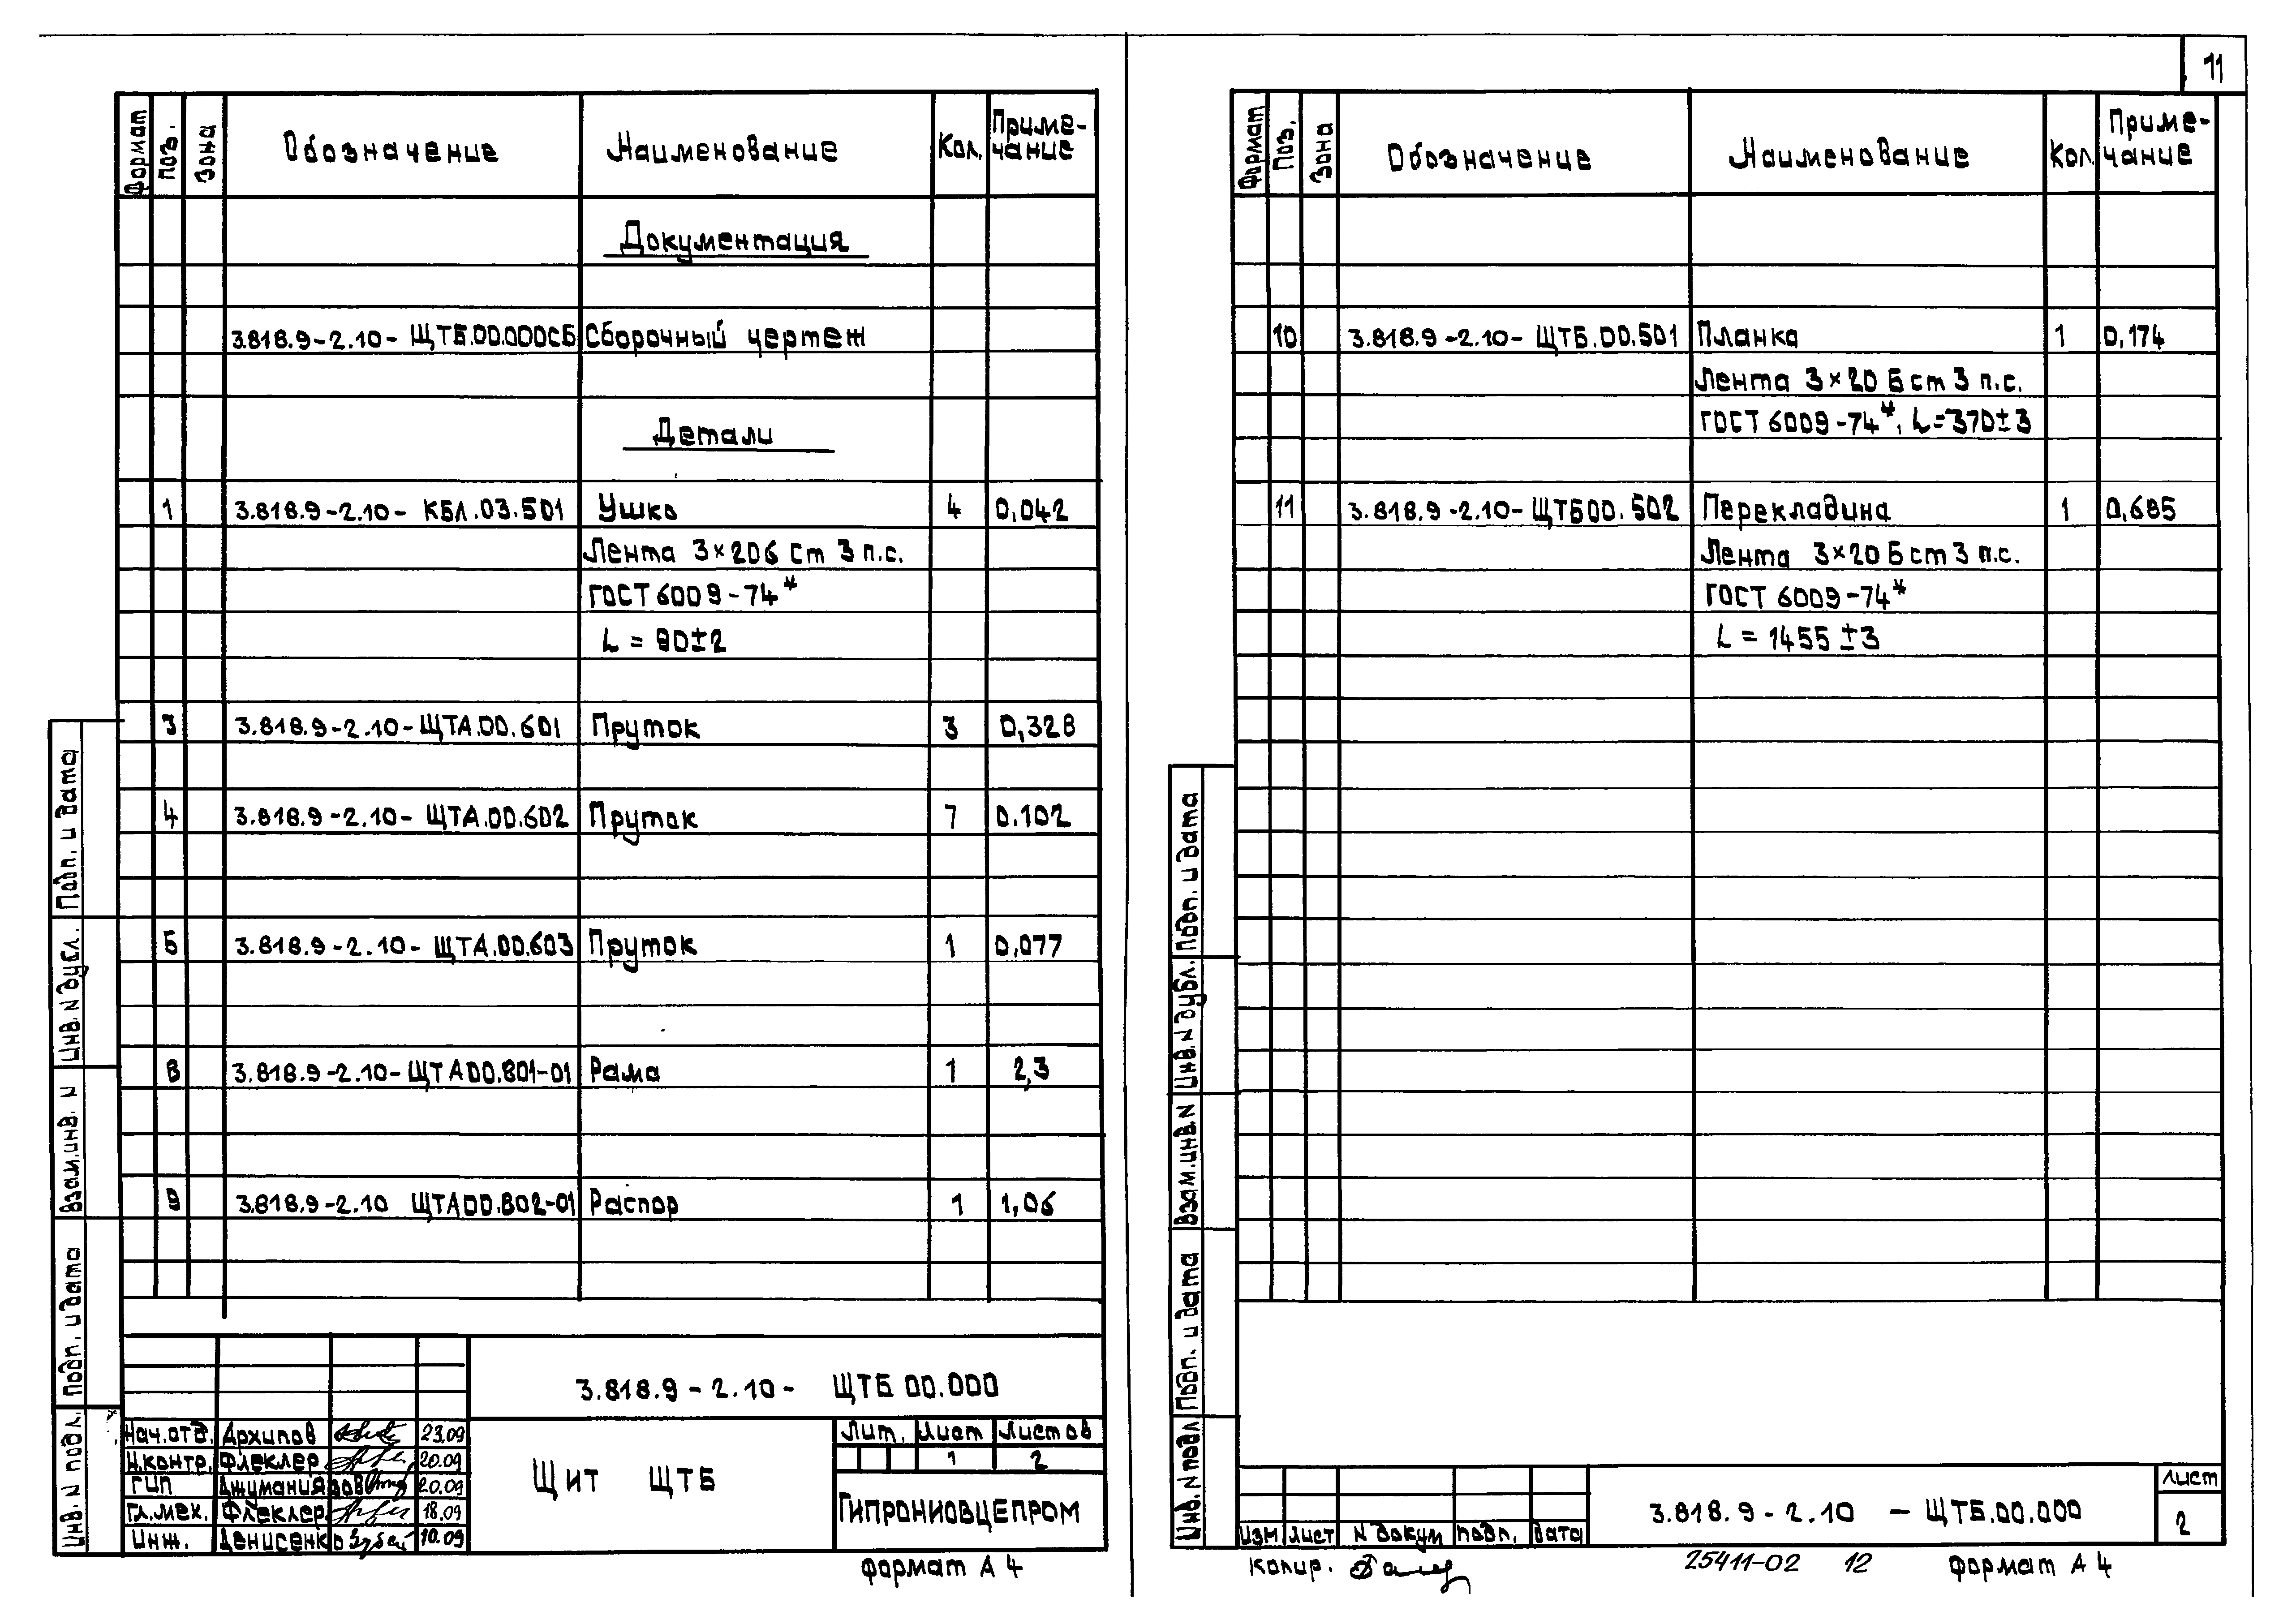 11
Формат Поз. Зона Обозначение Наименование Кол. Приме-
чание
Документация
3.818.9-2.10- ЩТБ.00.000СБ Сборочный чертеж
Детали
1 3.818.9-2.10- КБЛ.03.501 Ушко 4 0,042
Лента 3×20б Ст 3 п.с.
ГОСТ 6009-74*
L = 90±2
3 3.818.9-2.10-ЩТА.00.601 Пруток 3 0,328
4 3.818.9-2.10- ЩТА.00.602 Пруток 7 0.102
5 3.818.9-2.10- ЩТА.00.603 Пруток 1 0,077
8 3.818.9-2.10-ЩТА00.801-01 Рама 1 2,3
9 3.818.9-2.10 ЩТА00.802-01 Распор 1 1,06
Подп. и дата
Инв. N дубл.
Взам.инв. N
Подп. и дата
Инв. N подл.
3.818.9-2.10- ЩТБ 00.000
Нач.отд. Архипов 23.09
Н.контр. Флеклер 20.09
ГИП Джуманиязов 20.09
Гл.мех. Флеклер 18.09
Инж. Денисенко 10.09
Щит ЩТБ
Лит. Лист Листов
1 2
Гипрониовцепром
формат А 4
Формат Поз. Зона Обозначение Наименование Кол. Приме-
чание
10 3.818.9-2.10- ЩТБ.00.501 Планка 1 0,174
Лента 3×20 Б ст 3 п.с.
ГОСТ 6009-74*, L=370±3
11 3.818.9-2.10-ЩТБ00.502 Перекладина 1 0,685
Лента 3×20 Б ст 3 п.с.
ГОСТ 6009-74*
L = 1455 ±3
Подп. и дата
Инв. N дубл.
Взам.инв.N
Подп. и дата
Инв.N подл
Изм Лист N докум подп. Дата
3.818.9-2.10 - ЩТБ.00.000
Лист
2
Копир. 25411-02 12 формат А 4